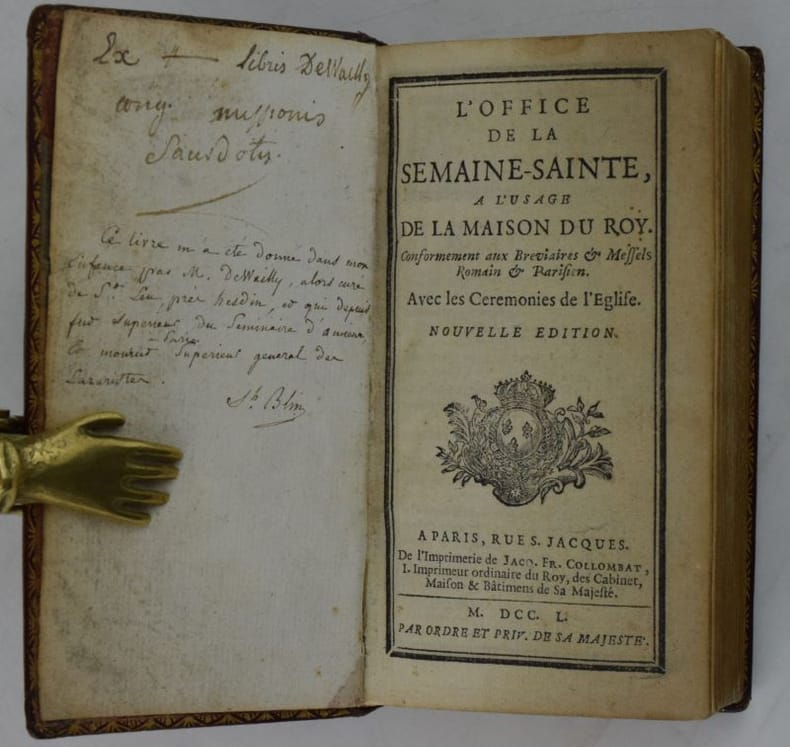 Ex libris DeWailly
cong. missionis
Sacerdotis.
Ce livre m'a été donné dans mon
enfance par M. DeWailly, alors curé
de St. Leu, près hesdin, et qui depuis
fut Superieur du Seminaire d'amiens,
à Paris
et mourut Superieur general des
Lazaristes.
Blin
L'OFFICE
DE LA
SEMAINE-SAINTE,
A L'USAGE
DE LA MAISON DU ROY.
Conformement aux Breviaires & Messels
Romain & Parisien.
Avec les Ceremonies de l'Eglise.
NOUVELLE EDITION.
A PARIS, RUE S. JACQUES.
De l'Imprimerie de JACQ. FR. COLLOMBAT,
I. Imprimeur ordinaire du Roy, des Cabinet,
Maison & Bâtimens de Sa Majesté.
M. DCC. L.
PAR ORDRE ET PRIV. DE SA MAJESTE'.